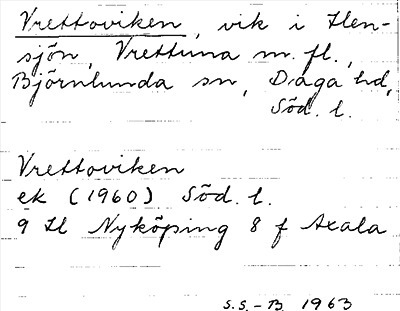 Vrettoviken, vik i Hen-
sjön, Vrettuna m. fl.,
Björnlunda sn, Daga hd,
Söd. l.
Vrettoviken
ek (1960) Söd. l.
9 H Nyköping 8 f Axala
S.S.-B. 1963